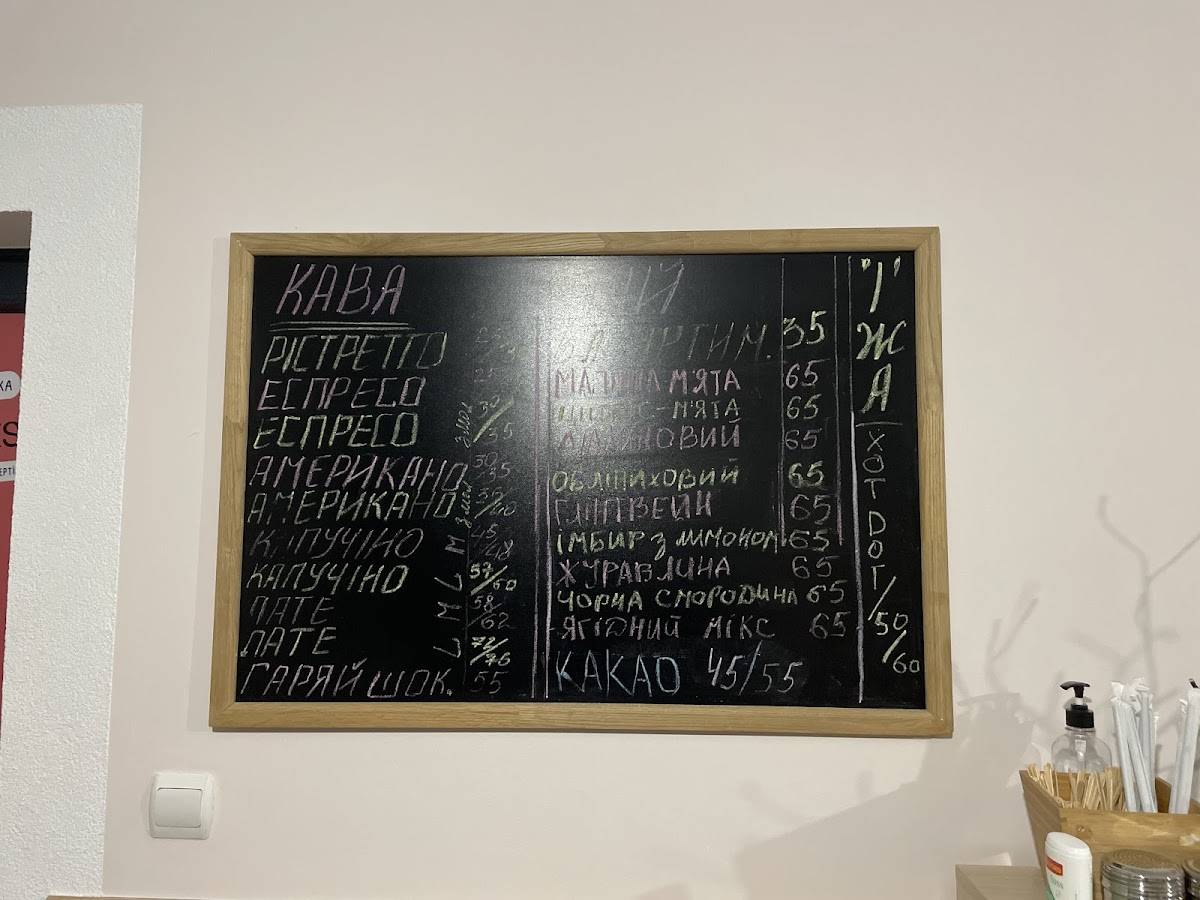 КАВА
РІСТРЕТТО
ЕСПРЕСО 25
ЕСПРЕСО З МОЛ 30/35
АМЕРИКАНО 30/35
АМЕРИКАНО З МОЛ
КАПУЧІНО M 45/48
КАПУЧІНО L 57/60
ЛАТЕ M 58/62
ЛАТЕ L 72/76
ГАРЯЙ ШОК. 55
35
МАЛИНА М'ЯТА 65
ЦИТРУС-М'ЯТА 65
65
ОБЛІПИХОВИЙ 65
ГЛІНТВЕЙН 65
ІМБИР З ЛИМОНОМ 65
ЖУРАВЛИНА 65
ЧОРНА СМОРОДИНА 65
ЯГІДНИЙ МІКС 65
КАКАО 45/55
"Ї"ЖА
ХОТ DОГ/50/60
КА